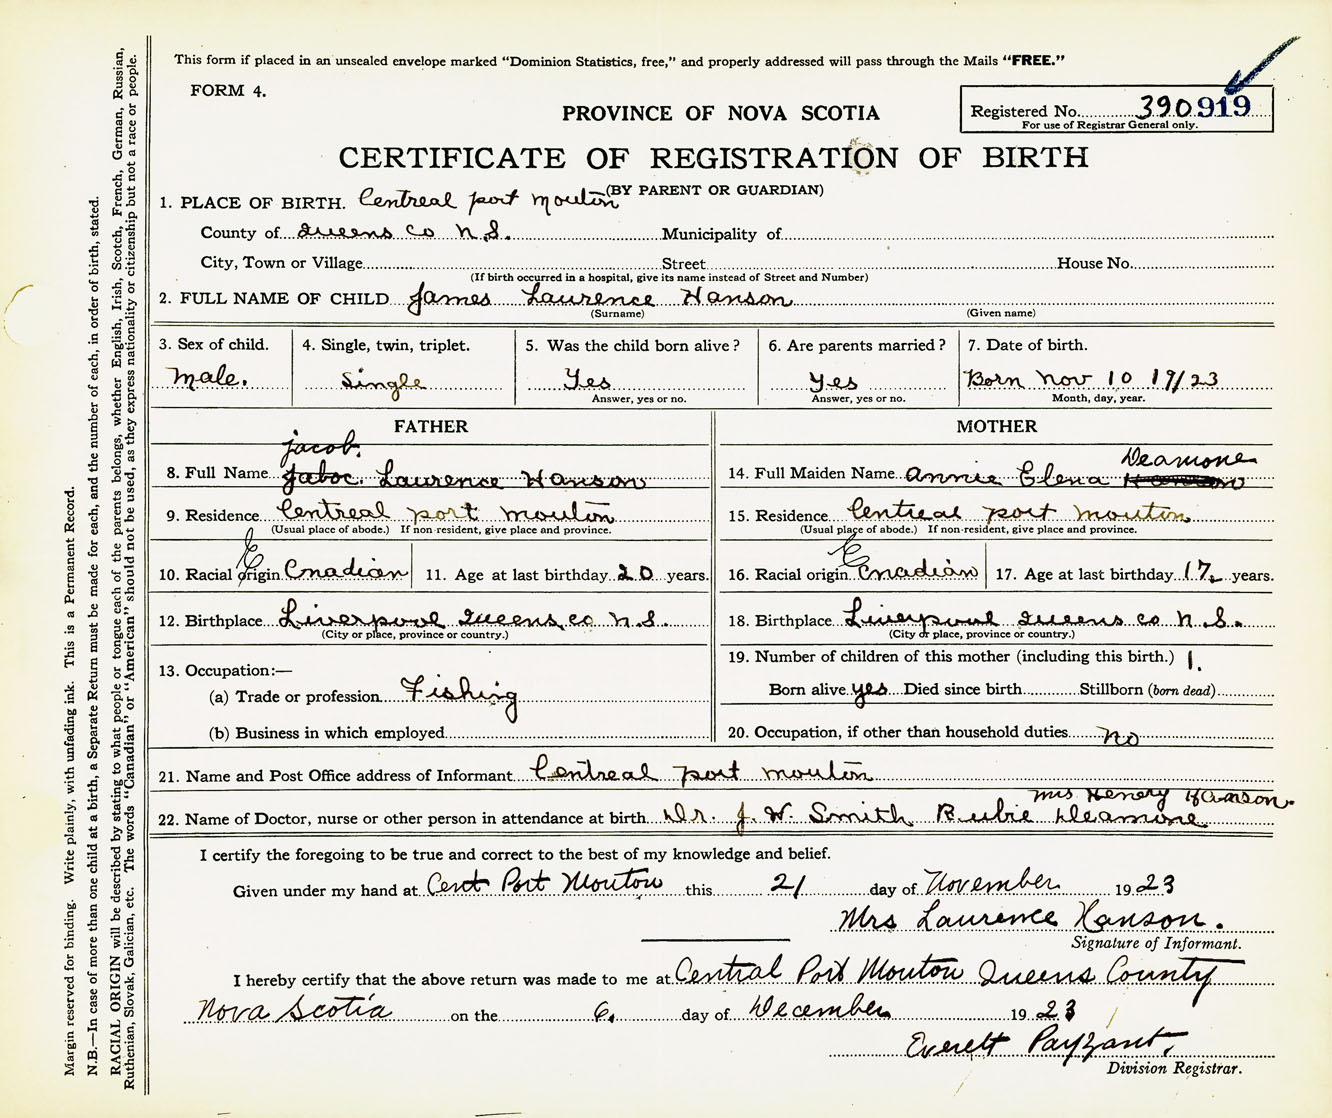 This form if placed in an unsealed envelope marked "Dominion Statistics, free," and properly addressed will pass through the Mails "FREE."
FORM 4.
PROVINCE OF NOVA SCOTIA
Registered No. 390919
For use of Registrar General only.
CERTIFICATE OF REGISTRATION OF BIRTH
(BY PARENT OR GUARDIAN)
1. PLACE OF BIRTH. Centreal port mouton
County of Queens Co N.S. Municipality of
City, Town or Village Street House No.
(If birth occurred in a hospital, give its name instead of Street and Number)
2. FULL NAME OF CHILD James Laurence Hanson
(Surname) (Given name)
3. Sex of child. 4. Single, twin, triplet. 5. Was the child born alive? 6. Are parents married? 7. Date of birth.
Male. Single Yes Yes Born Nov 10 19/23
Answer, yes or no. Answer, yes or no. Month, day, year.
FATHER MOTHER
jacob. Deamone
8. Full Name Jaboc. Laurence Hanson 14. Full Maiden Name Annie Elena Hanson
9. Residence Centreal port mouton 15. Residence Centreal port mouton
(Usual place of abode.) If non-resident, give place and province. (Usual place of abode.) If non-resident, give place and province.
E E
10. Racial origin Cnadian 11. Age at last birthday 20 years. 16. Racial origin Cnadian 17. Age at last birthday 17 years.
12. Birthplace Liverpool Queens co N.S. 18. Birthplace Liverpool Queens co N.S.
(City or place, province or country.) (City or place, province or country.)
13. Occupation:— 19. Number of children of this mother (including this birth.) 1.
(a) Trade or profession Fishing Born alive yes Died since birth Stillborn (born dead)
(b) Business in which employed 20. Occupation, if other than household duties no
21. Name and Post Office address of Informant Centreal port mouton
mrs Henery Hanson.
22. Name of Doctor, nurse or other person in attendance at birth Dr. J. W. Smith Rubie Deamone
I certify the foregoing to be true and correct to the best of my knowledge and belief.
Given under my hand at Cent Port Mouton this 21 day of November 1923
Mrs Laurence Hanson.
Signature of Informant.
I hereby certify that the above return was made to me at Central Port Mouton Queens County
Nova Scotia on the 6. day of December 1923
Everett Payzant,
Division Registrar.
Margin reserved for binding. Write plainly, with unfading ink. This is a Permanent Record.
N.B.—In case of more than one child at a birth, a Separate Return must be made for each, and the number of each, in order of birth, stated.
RACIAL ORIGIN will be described by stating to what people or tongue each of the parents belongs, whether English, Irish, Scotch, French, German, Russian,
Ruthenian, Slovak, Galician, etc. The words "Canadian" or "American" should not be used, as they express nationality or citizenship but not a race or people.